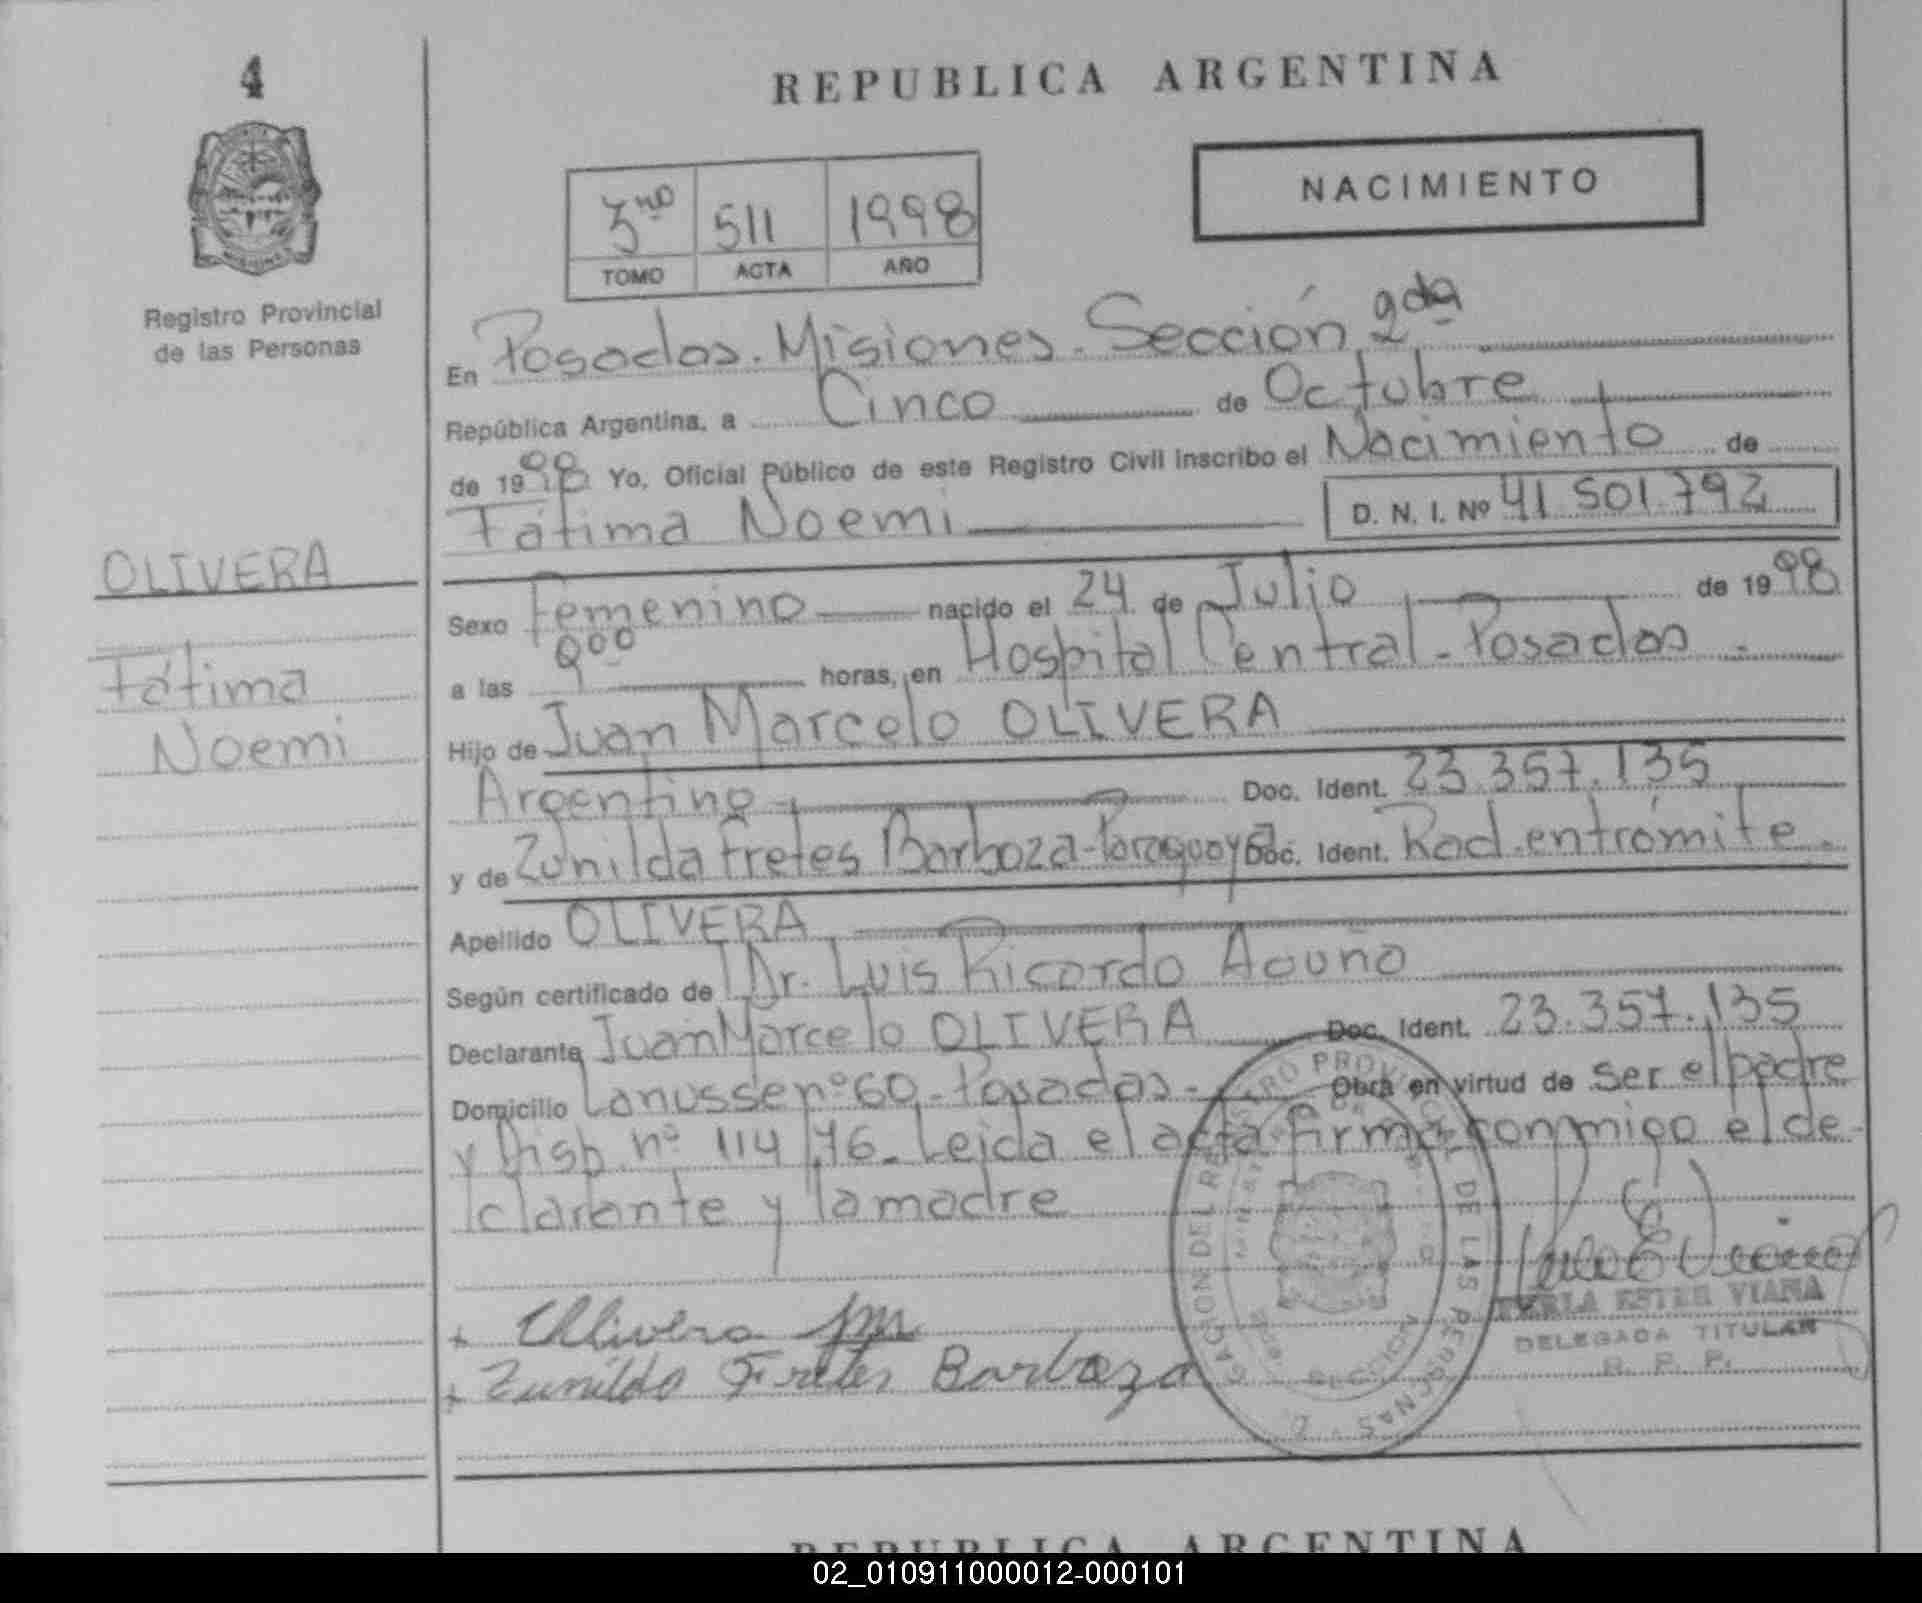 4
REPUBLICA ARGENTINA
NACIMIENTO
3ro 511 1998
TOMO ACTA AÑO
Registro Provincial
de las Personas
En Posadas. Misiones. Sección 2da
República Argentina, a Cinco de Octubre
de 1998 Yo, Oficial Público de este Registro Civil inscribo el Nacimiento de
Fátima Noemi D. N. I. Nº 41 501.792
OLIVERA
Fátima
Noemi
Sexo Femenino nacido el 24 de Julio de 1998
a las horas, en Hospital Central - Posadas -
Hijo de Juan Marcelo OLIVERA
Argentino Doc. Ident. 23.357.135
y de Zunilda Fretes Barboza - Paraguaya Doc. Ident. Rad. en trámite.
Apellido OLIVERA
Según certificado de Dr. Luis Ricardo Acuña
Declarante Juan Marcelo OLIVERA Doc. Ident. 23.357.135
Domicilio Lanusse nº 60 - Posadas - Obra en virtud de ser el padre
y Disp. nº 114/76. Leida el acta firma conmigo el de-
clarante y la madre
Olivera JM
Zunilda Fretes Barboza
PERLA ESTER VIANA
DELEGADA TITULAR
R. P. P.
DELEGACION DEL REGISTRO PROVINCIAL DE LAS PERSONAS
SECCION
REPUBLICA ARGENTINA
02_010911000012-000101